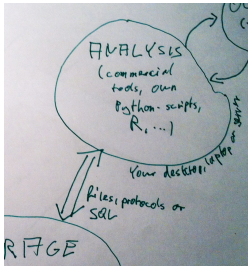 ANALYSIS
(commercial
tools, own
Python-scripts,
R, ...)
Your desktop, laptop or server
Files, protocols or
SQL
RAGE